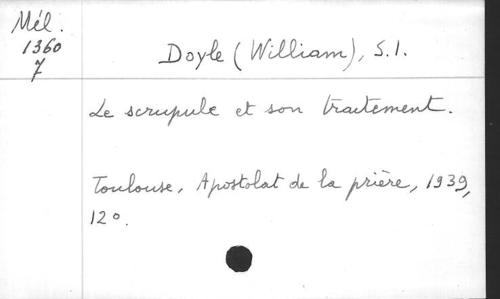 Mél.
1360
7
Doyle (William), S.I.
Le scrupule et son traitement.
Toulouse, Apostolat de la prière, 1939,
12°.